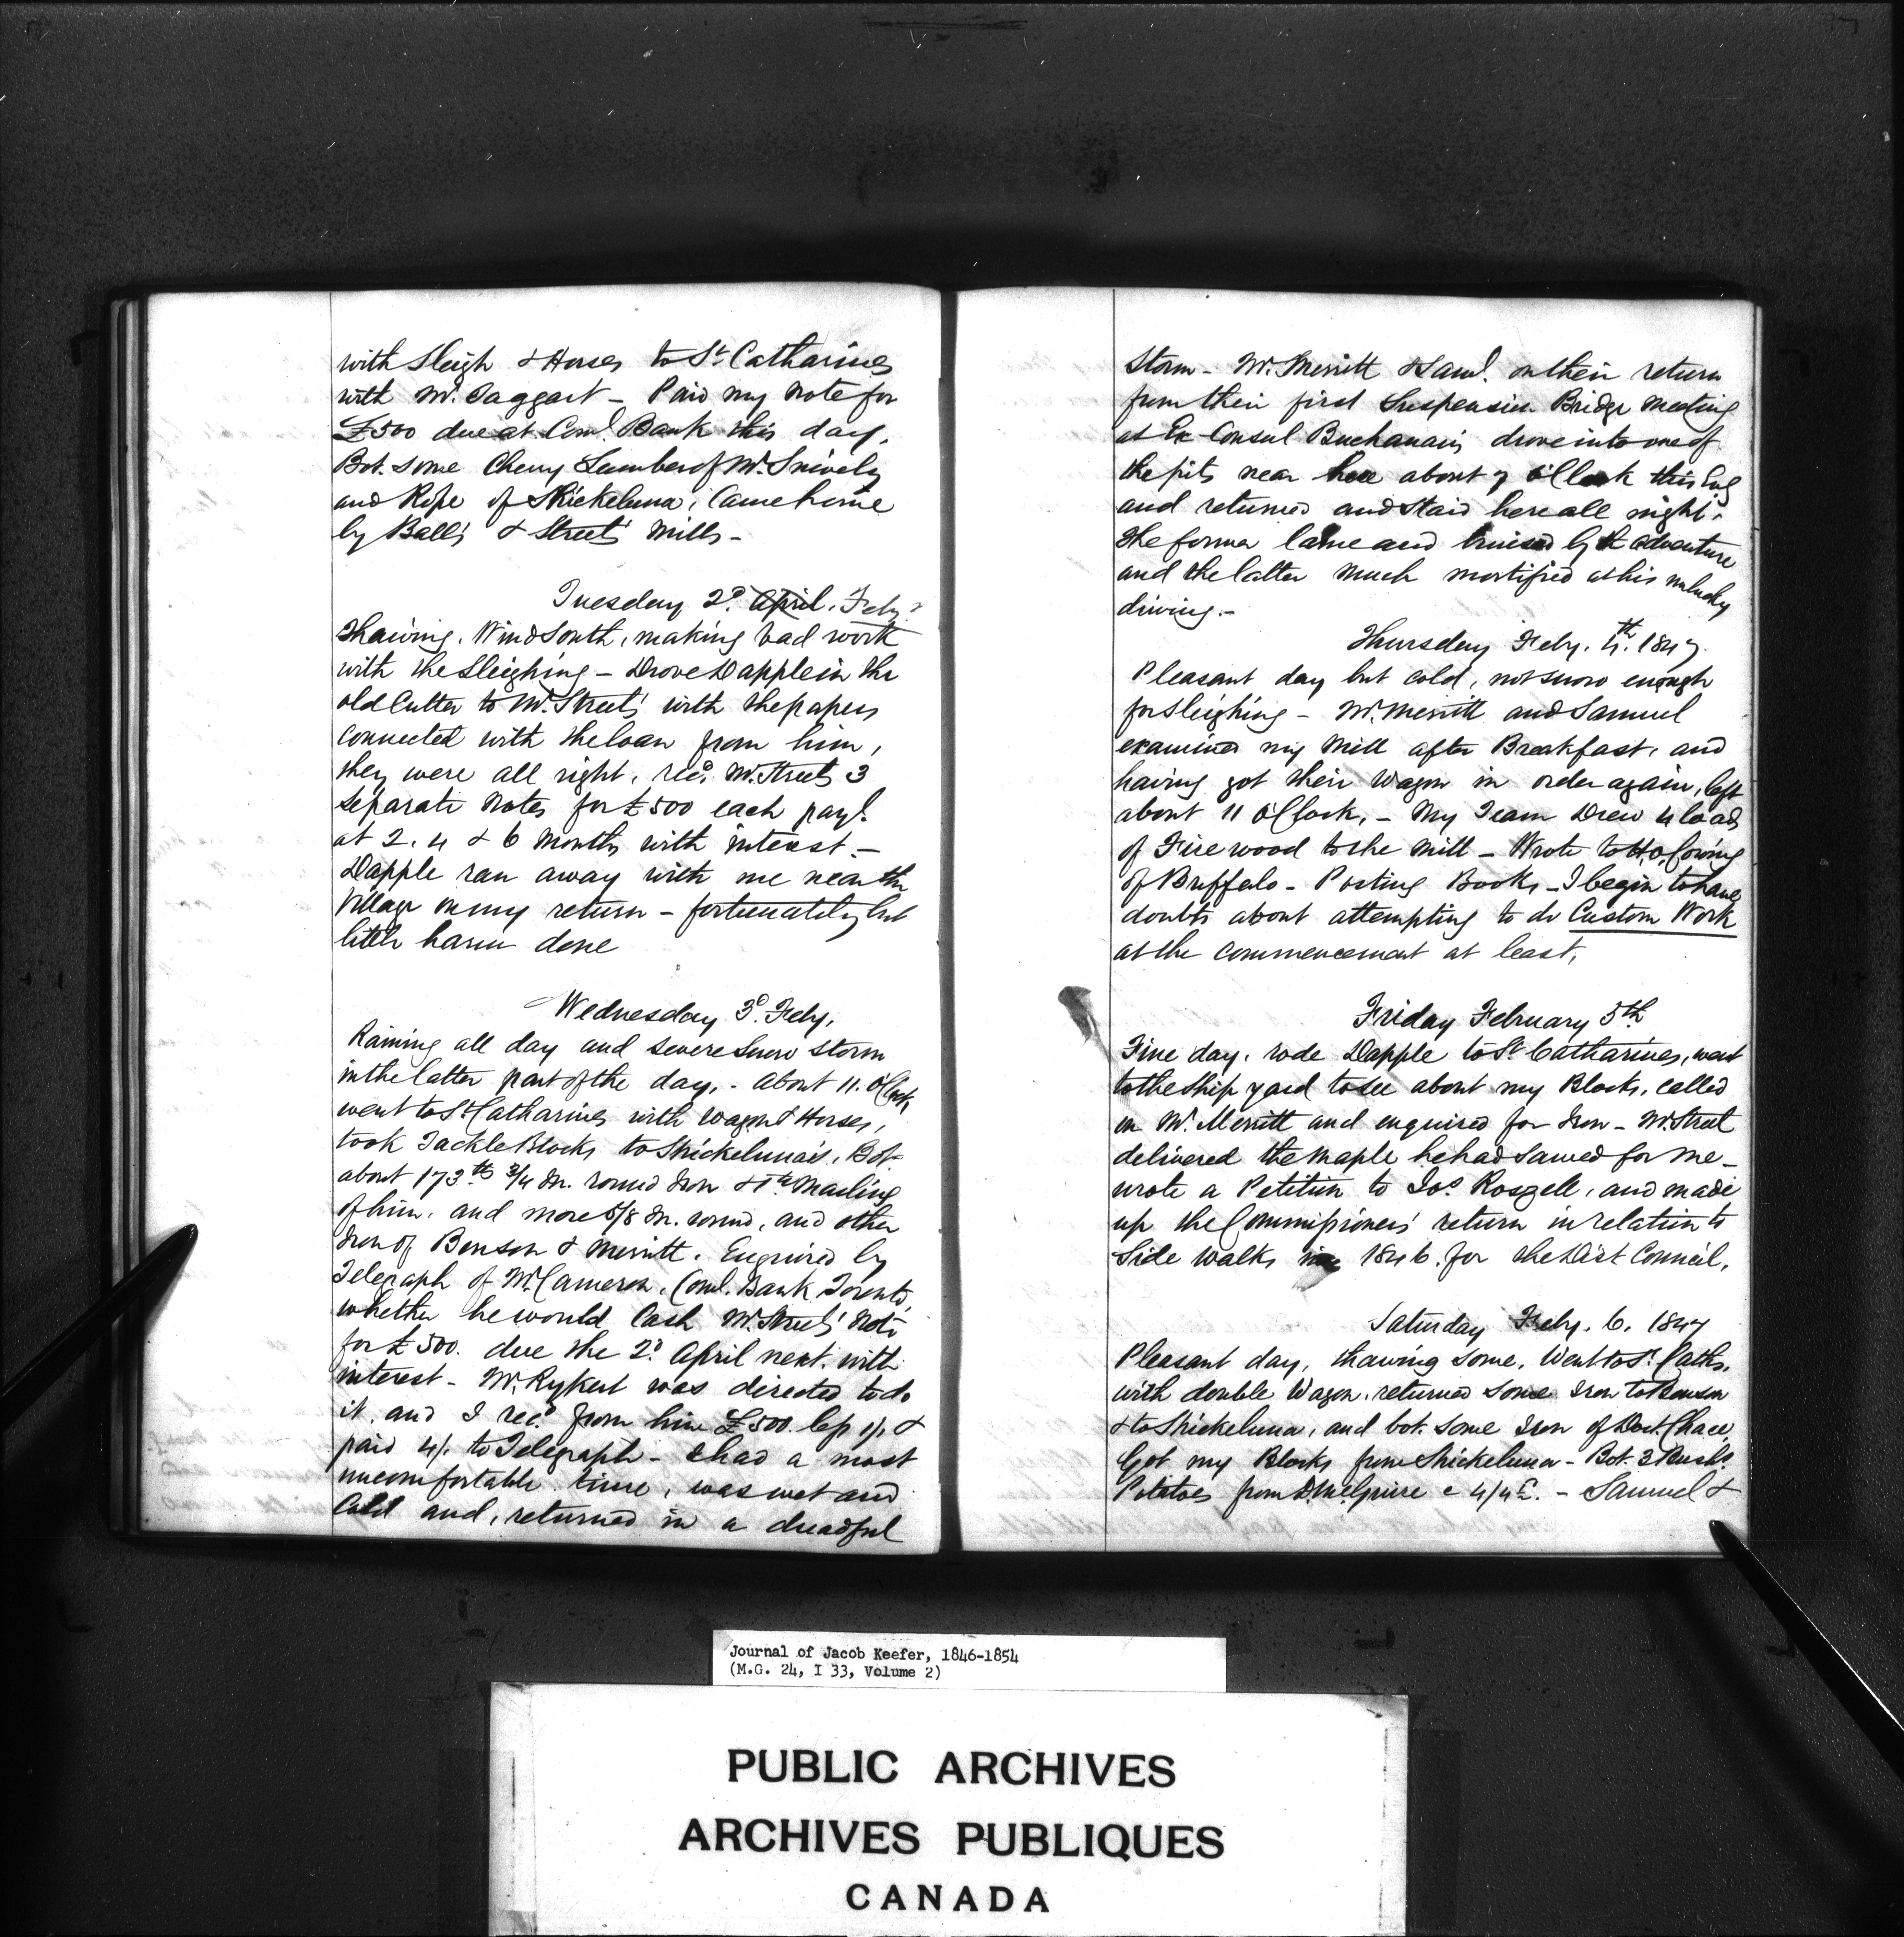 with Sleigh & Horses to St. Catharines
with Mr. Taggart - Paid my Note for
£500 due at Coml. Bank this day,
Bot. some Cherry Lumber of Mr. Snively
and Rope of Shickeluna, Came home
by Ball's & Street's Mills -
Tuesday 2d. April, Feby.
Thawing, Wind South, making bad work
with the Sleighing - Drove Dapple in the
old Cutter to Mr. Street's with the papers
connected with the loan from him,
they were all right, recd. Mr. Streets 3
separate Notes for £500 each payl.
at 2, 4 & 6 Months with interest -
Dapple ran away with me near the
Village on my return - fortunately but
little harm done
Wednesday 3d. Feby,
Raining all day and severe Snow Storm
in the latter part of the day, - About 11. O'Clock
went to St. Catharines with Wagon & Horses,
took Tackle Blocks to Shickeluna's, Bot.
about 173 lbs 3/4 In. round Iron &
of him, and more 5/8 In. round, and other
Iron of Benson & Merritt. Enquired by
Telegraph of Mr. Cameron, Coml. Bank Toronto,
whether he would Cash Mr. Streets' Note
for £500. due the 2d. April next. with
interest - Mr. Rykert was directed to do
it, and I recd. from him £500. less 1/1 &
paid 4/. to Telegraph - & had a most
uncomfortable time, was wet and
Cold and, returned in a dreadful
Storm - Mr. Merritt & Saml. on their return
from their first Suspension Bridge Meeting
at Ex-Consul Buchanan's drove into one of
the pits near here about 7 O'Clock this Evg
and returned and staid here all night,
the former lame and bruised by the adventure
and the latter much mortified at his unlucky
driving. -
Thursday Feby. 4th. 1847.
Pleasant day but cold, not snow enough
for Sleighing - Mr. Merritt and Samuel
examined my Mill after Breakfast, and
having got their Wagon in order again, left
about 11 O'Clock, - My Team Drew 4 loads
of Fire wood to the Mill - Wrote to
of Buffalo - Posting Books - I begin to have
doubts about attempting to do Custom Work
at the commencement at least,
Friday February 5th
Fine day, rode Dapple to St. Catharines, went
to the Ship yard to see about my Blocks, called
on Mr. Merritt and enquired for Iron - Mr. Street
delivered the Maple he had sawed for me -
wrote a Petition to Jos. Roszell, and made
up the Commissioners' return in relation to
Side walks 1846. for the Dist Council,
Saturday Feby. 6. 1847
Pleasant day, thawing some, Went to St. Caths.
with double Wagon, returned some Iron to Benson
& to Shickeluna, and bot. some Iron of Doct. Chace,
Got my Blocks from Shickeluna - Bot. 3 Bushs.
Potatoes from D. McGuire 4/4 - Samuel &
Journal of Jacob Keefer, 1846-1854
(M.G. 24, I 33, Volume 2)
PUBLIC ARCHIVES
ARCHIVES PUBLIQUES
CANADA